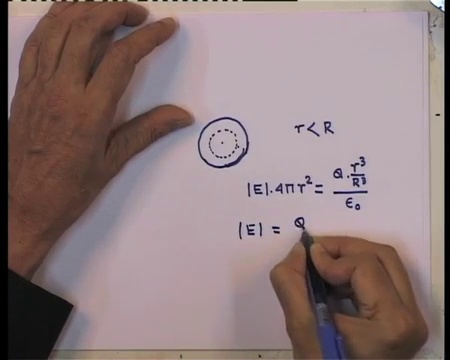 r < R
|E|.4πr² = Q.r³/R³ / ε₀
|E| = Q